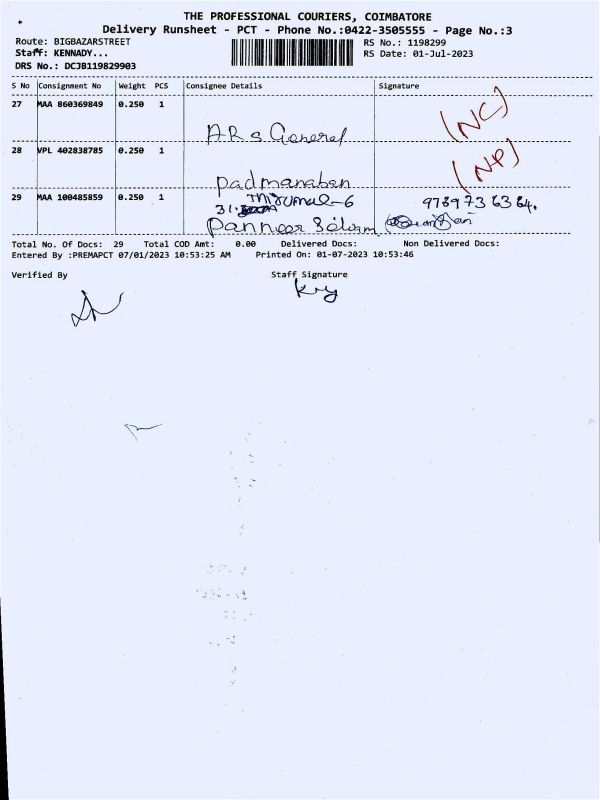 THE PROFESSIONAL COURIERS, COIMBATORE
Delivery Runsheet - PCT - Phone No.:0422-3505555 - Page No.:3
Route: BIGBAZARSTREET
RS No.: 1198299
Staff: KENNADY...
RS Date: 01-Jul-2023
DRS No.: DCJB119829903
S No Consignment No Weight PCS Consignee Details Signature
27 MAA 860369849 0.250 1
(NC)
ARS General
28 VPL 402838785 0.250 1
(NP)
Padmanaban
29 MAA 100485859 0.250 1
Thirumal-6
31.
Panneer Selvam
Total No. Of Docs: 29 Total COD Amt: 0.00 Delivered Docs: Non Delivered Docs:
Entered By :PREMAPCT 07/01/2023 10:53:25 AM Printed On: 01-07-2023 10:53:46
Verified By Staff Signature